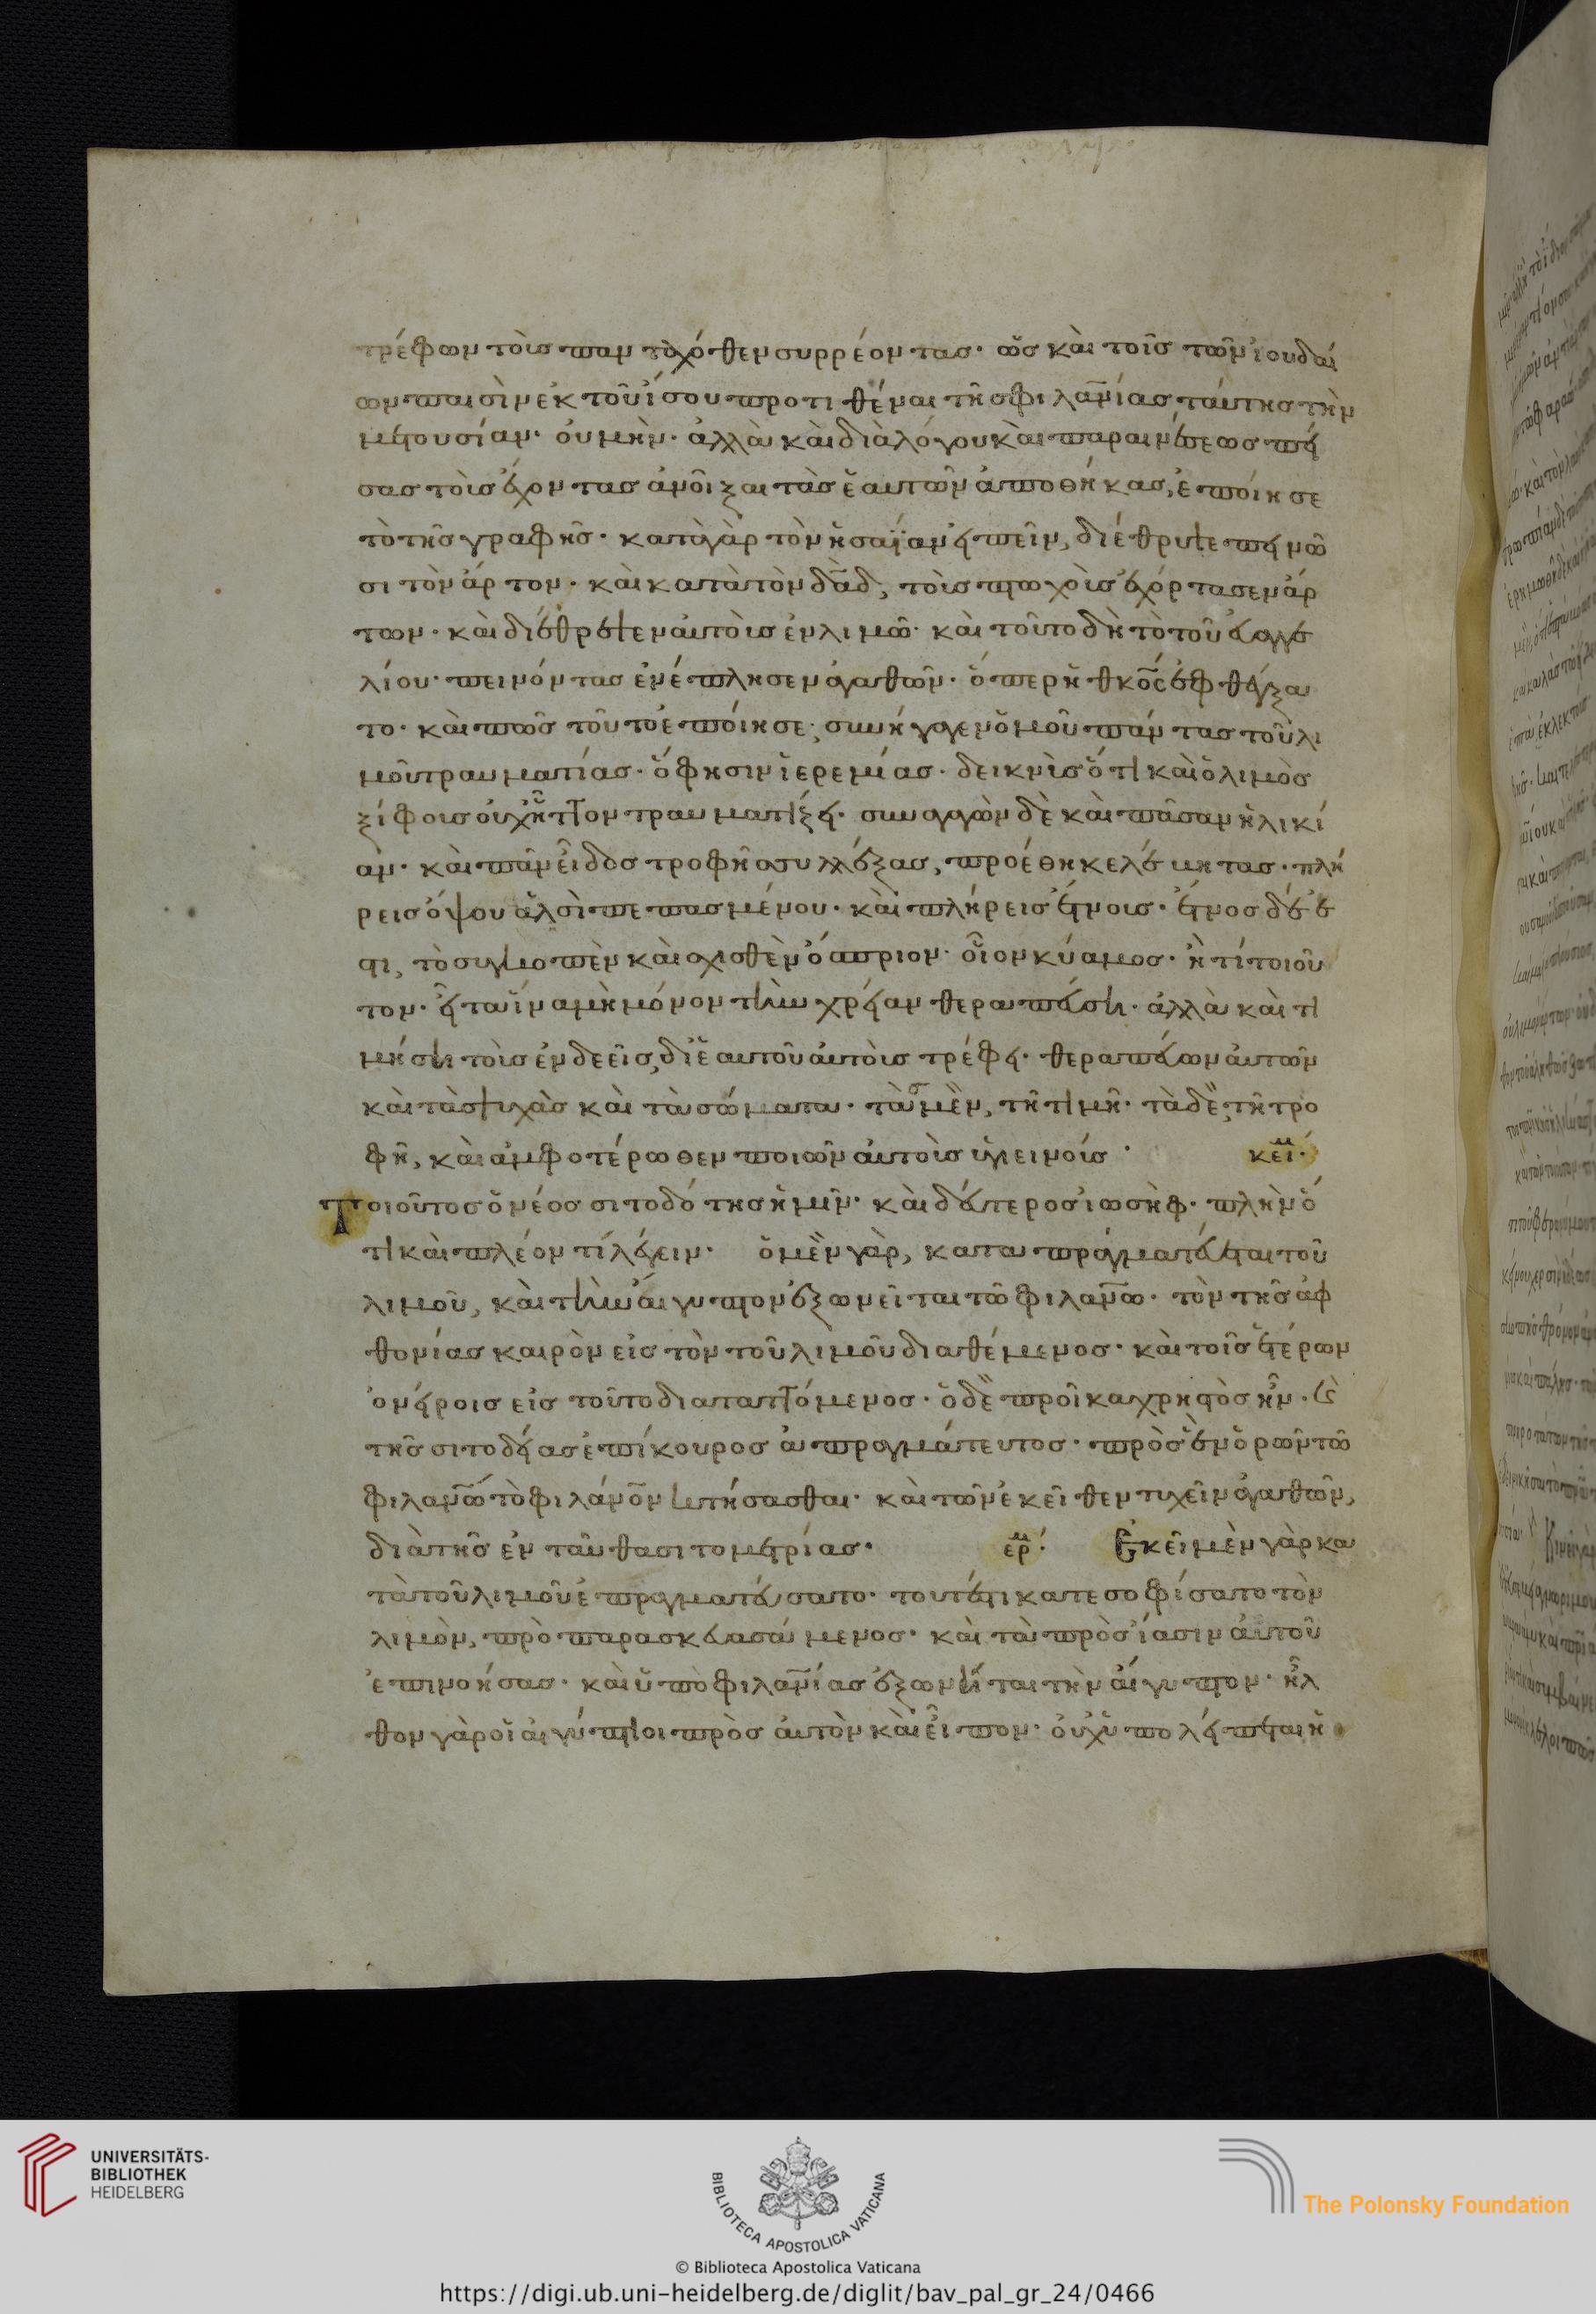 τρέφων τοὺς πανταχόθεν συρρέοντας· ὡς καὶ τοῖς τῶν ἰουδαί
ων παισὶν ἐκ τοῦ ἴσου προτιθέναι τῆς φιλανίας ταύτης τὴν
μετουσίαν· οὐ μὴν· ἀλλὰ καὶ διὰ λόγου καὶ παραινέσεως πεί
σας τοὺς ἔχοντας ἀνοῖξαι τὰς ἑαυτῶν ἀποθήκας, ἐποίησε
τὸ τῆς γραφῆς· κατὰ γὰρ τὸν ἡσαΐαν εἰπεῖν, διέθρυψε πεινῶ
σι τὸν ἄρτον· καὶ κατὰ τὸν δᾱδ, τοὺς πτωχοὺς ἐχόρτασεν ἄρ
των· καὶ διέθρεψεν αὐτοὺς ἐν λιμῶ· καὶ τοῦτο δὴ τὸ τοῦ εὐαγγε
λίου· πεινόντας ἐνέπλησεν ἀγαθῶν· ὅπερ ἡ θκος ἐφθέγξα
το· καὶ πῶς τοῦτο ἐποίησε; συνήγαγεν ὁμοῦ πάντας τοῦ λι
μοῦ τραυματίας· ὅ φησιν ἱερεμίας· δεικνὺς ὅτι καὶ ὁ λιμὸς
ξίφους οὐχ ἧττον τραυματίζει· συναγαγὼν δὲ καὶ πᾶσαν ἡλικί
αν· καὶ πᾶν εἶδος τροφῆς συλλέξας, προέθηκε λέβητας· πλή
ρεις ὄψου ἁλσὶ πεπασμένου· καὶ πλήρεις ἔτνους· ἔτνος δέ ἐ
στι, τὸ καὶ σχισθὲν ὄσπριον· οἷον κύαμος· ἤ τι τοιοῦ
τον· εἶτα ἵνα μὴ μόνον τὴν χρείαν θεραπεύση· ἀλλὰ καὶ τι
μήση τοὺς ἐνδεεῖς, δι ἑαυτοῦ αὐτοὺς τρέφει· θεραπεύων αὐτῶν
καὶ τὰς ψυχὰς καὶ τὰ σώματα· τὰς μὲν, τῆ τιμῆ· τὰ δὲ, τῆ τρο
φῆ, καὶ ἀμφοτέρωθεν ποιῶν αὐτοὺς ὑγιεινούς· κεί μ·
Τοιοῦτος ὁ νέος σιτοδότης ἡμῖν· καὶ δεύτερος ἰωσὴφ· πλὴν ὅ
τι καὶ πλέον τί λέγειν· ὁ μὲν γὰρ, καταπραγματεύεται τοῦ
λιμοῦ, καὶ τὴν αἴγυπτον ἐξωνεῖται τῶ φιλανω· τὸν τῆς ἀφ
θονίας καιρὸν εἰς τὸν τοῦ λιμοῦ διαθέμενος· καὶ τοῖς ἑτέρων
ὀνείροις εἰς τοῦτο διαταττόμενος· ὁ δὲ προῖκα χρηστὸς ἦν· καὶ
τῆς σιτοδείας ἐπίκουρος ἀπραγμάτευτος· πρὸς ἓν ὁρῶν τῶ
φιλανω τὸ φιλάνον κτήσασθαι· καὶ τῶν ἐκεῖθεν τυχεῖν ἀγαθῶν,
διὰ τῆς ἐνταῦθα σιτομετρίας· ερμ· Ἐκεῖ μὲν γὰρ κα
τὰ τοῦ λιμοῦ ἐπραγματεύσατο· τουτέστι κατεσοφίσατο τὸν
λιμὸν, προπαρασκευασάμενος· καὶ τὰ πρὸς ἴασιν αὐτοῦ
ἐπινοήσας· καὶ ὑπὸ φιλανίας ἐξωνεῖται τὴν αἴγυπτον· ἦλ
θον γὰρ οἱ αἰγύπτιοι πρὸς αὐτὸν καὶ εἶπον· οὐχ ὑπολείπεται ἡ
UNIVERSITÄTS-
BIBLIOTHEK
HEIDELBERG
BIBLIOTECA APOSTOLICA VATICANA
The Polonsky Foundation
© Biblioteca Apostolica Vaticana
https://digi.ub.uni-heidelberg.de/diglit/bav_pal_gr_24/0466